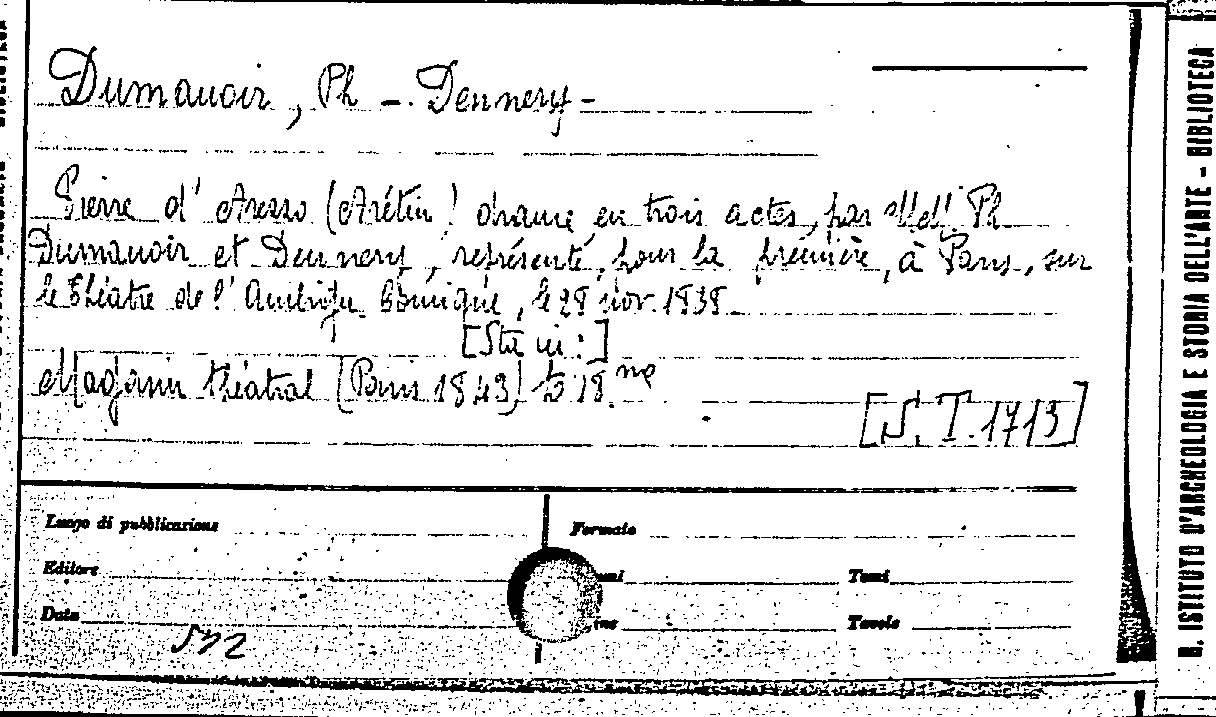 Dumanoir, Ph - Dennery -
Pierre d'Arezzo (Arétin) drame en trois actes, par MM. Ph
Dumanoir et Dennery, représenté, pour la première, à Paris, sur
le théâtre de l'Ambigu Comique, le 28 nov. 1838
[Sta in:]
Magasin théatral (Paris 1843) to 18.me
[S. T. 1713]
Luogo di pubblicazione
Formato
Editore
Tomi
Data
Tavole
572
R. ISTITUTO D'ARCHEOLOGIA E STORIA DELL'ARTE - BIBLIOTECA